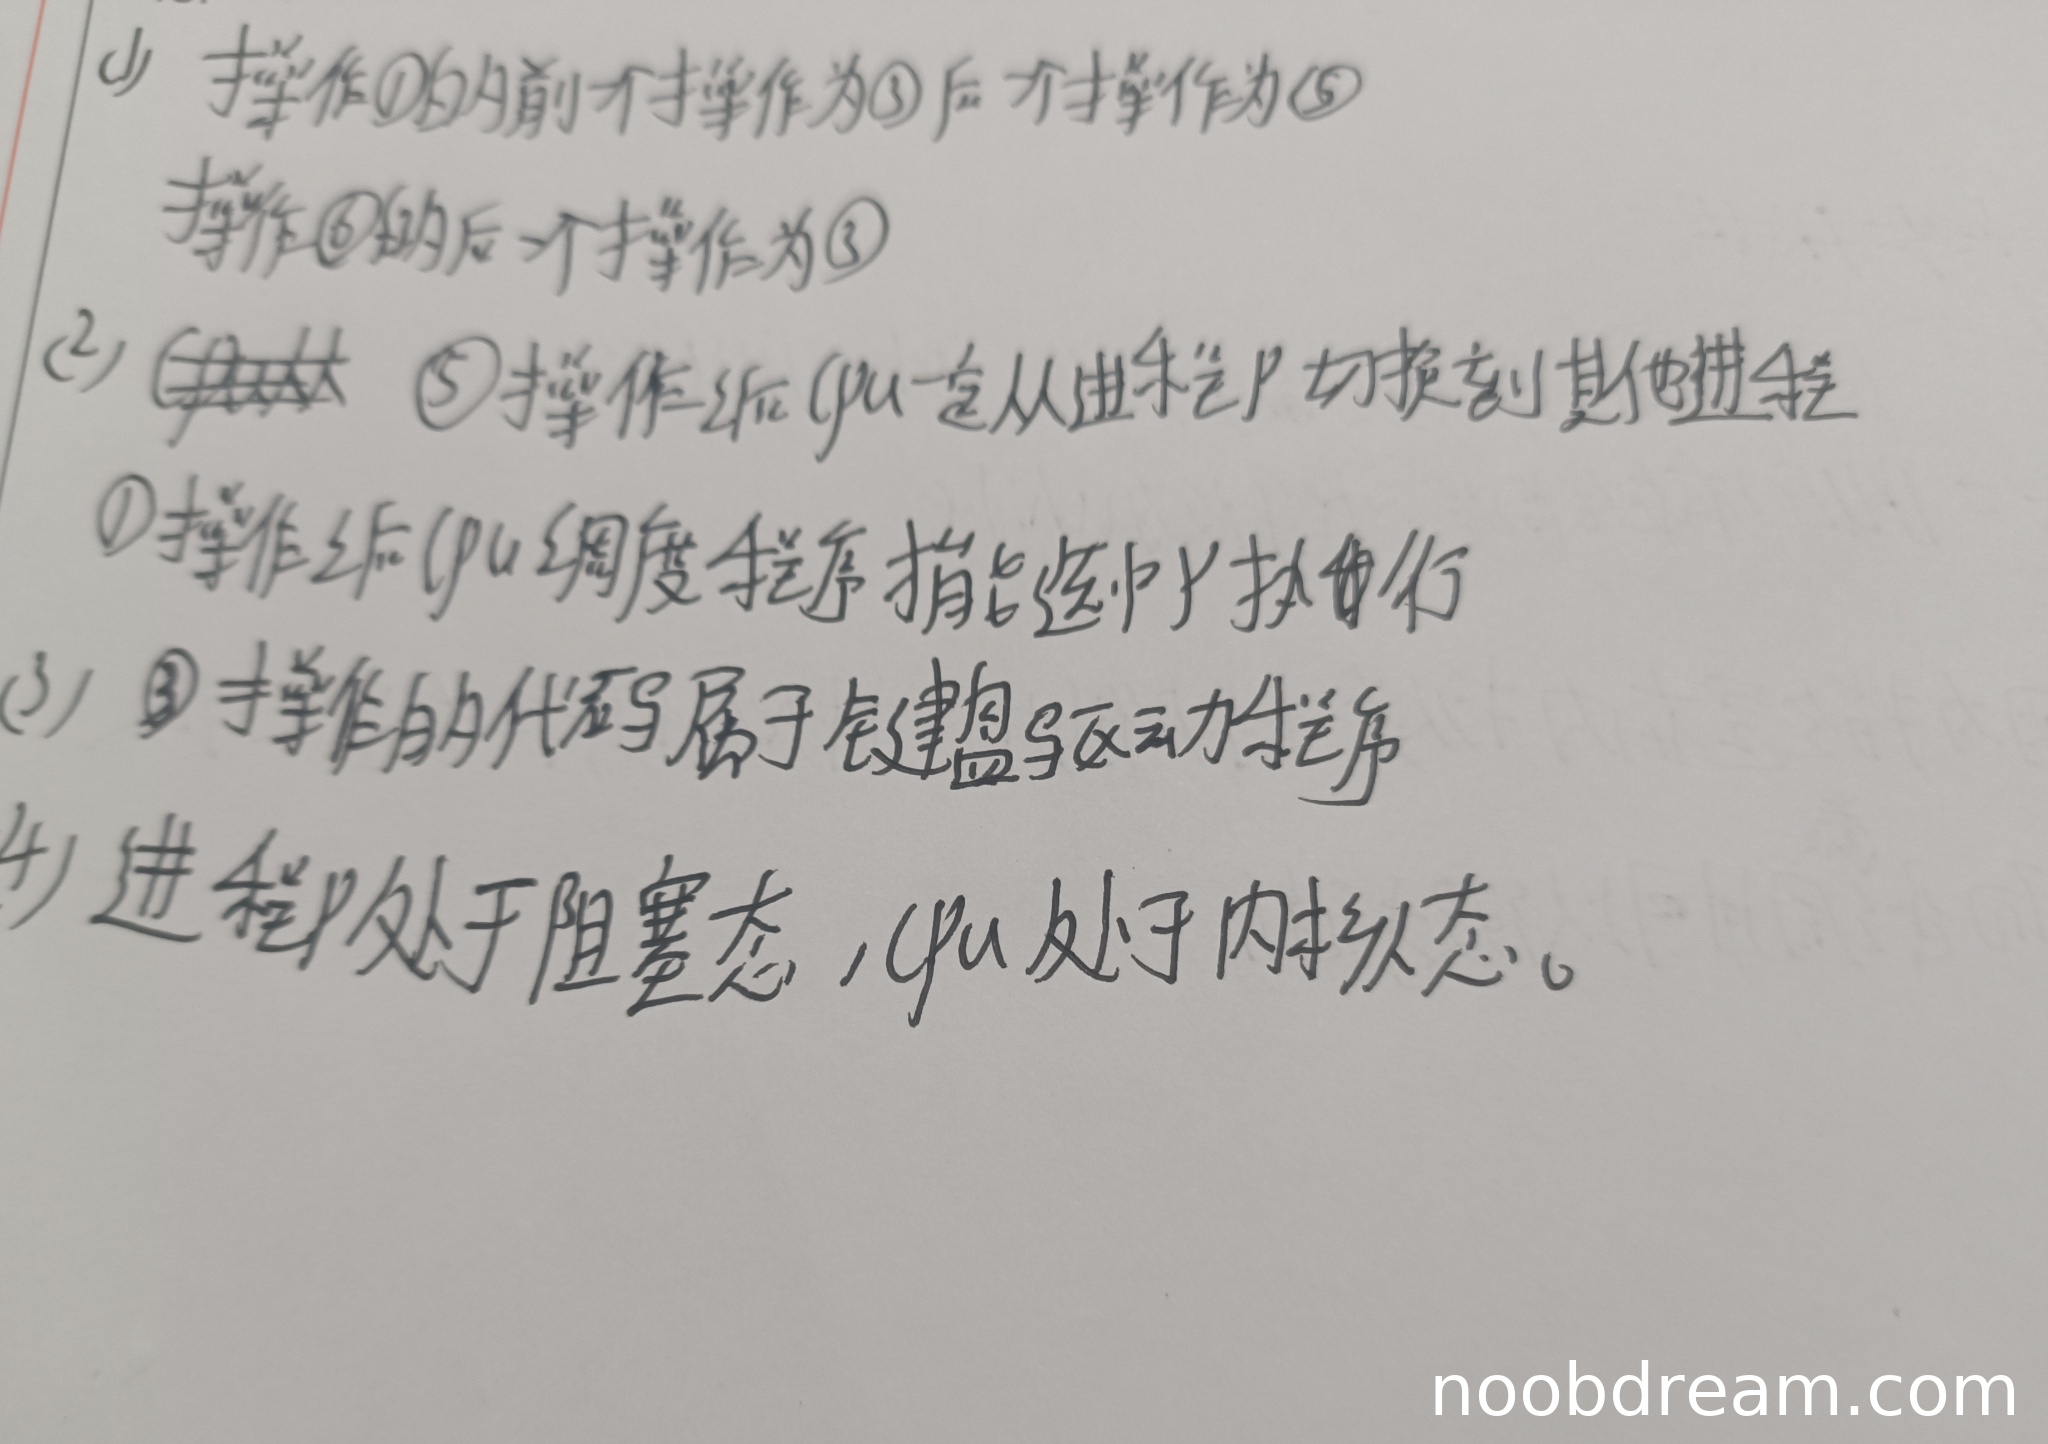 (1) 操作①的前一个操作为③后一个操作为⑤
操作⑥的后一个操作为③
(2) ⑤操作后CPU一定从进程P切换到其他进程
①操作后CPU调度程序才能选中P执行
(3) ③操作的代码属于键盘驱动程序
(4) 进程P处于阻塞态,CPU处于内核态。
noobdream.com